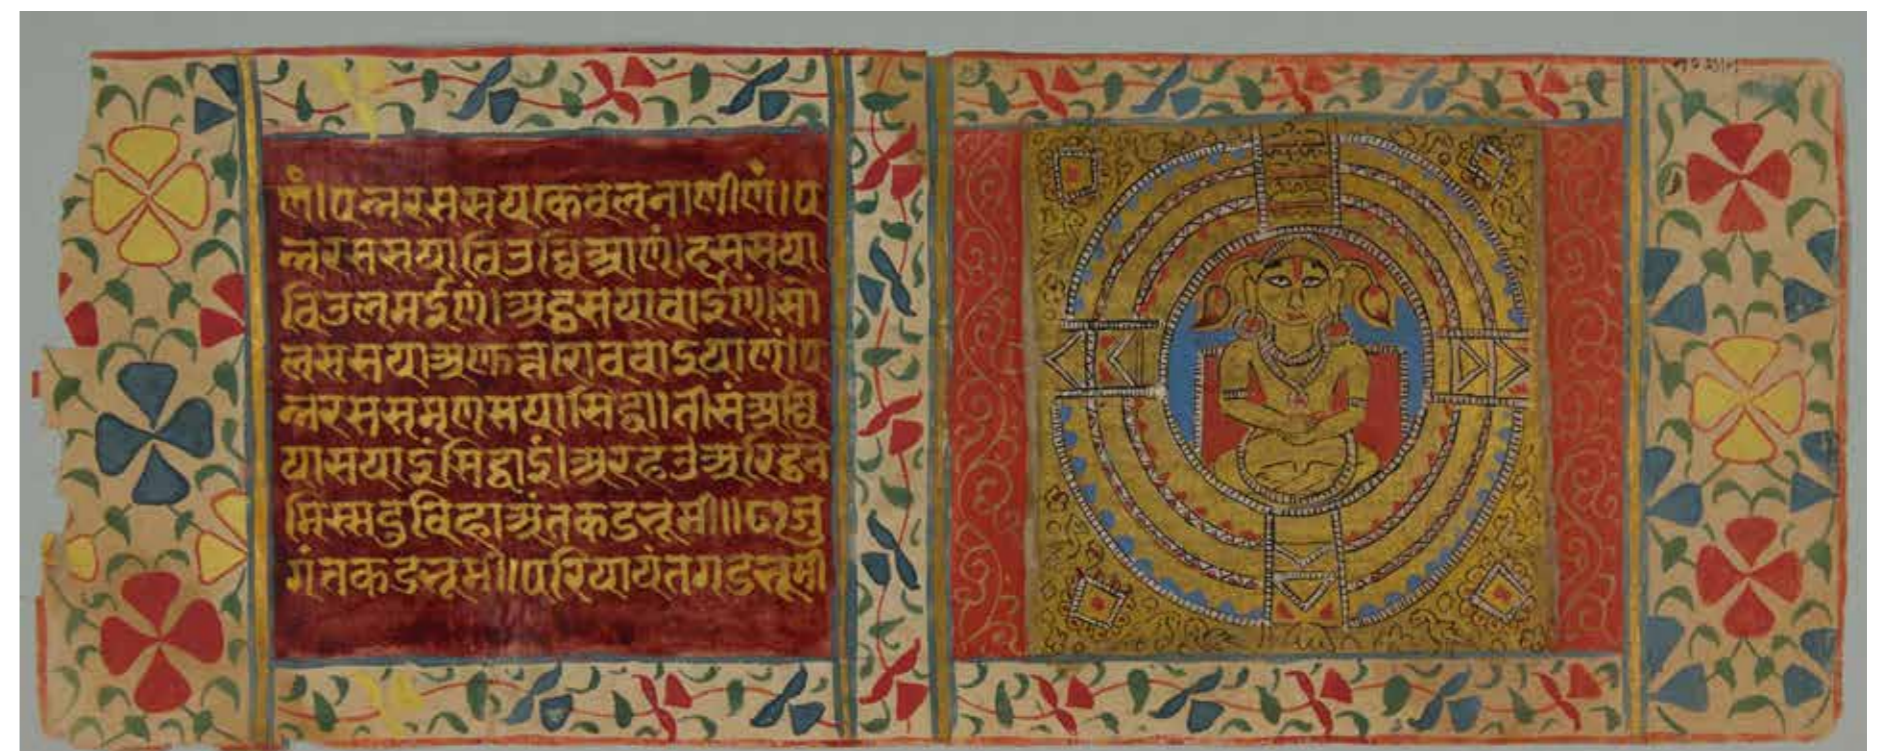 णं।पन्नरससयाकेवलनाणीणं।प
न्नरससयावेउव्विआणं।दससया
विउलमईणं।अट्ठसयावाईणं।सो
लससयाअणुत्तरोववाइयाणं।प
न्नरससमणसयासिद्धा।तीसंअज्जि
यासयाइंसिद्धाइं।अरहउअरिट्ठने
मिस्सदुविहाअंतकडभूमी॥जु
गंतकडभूमी॥परियायंतगडभूमी